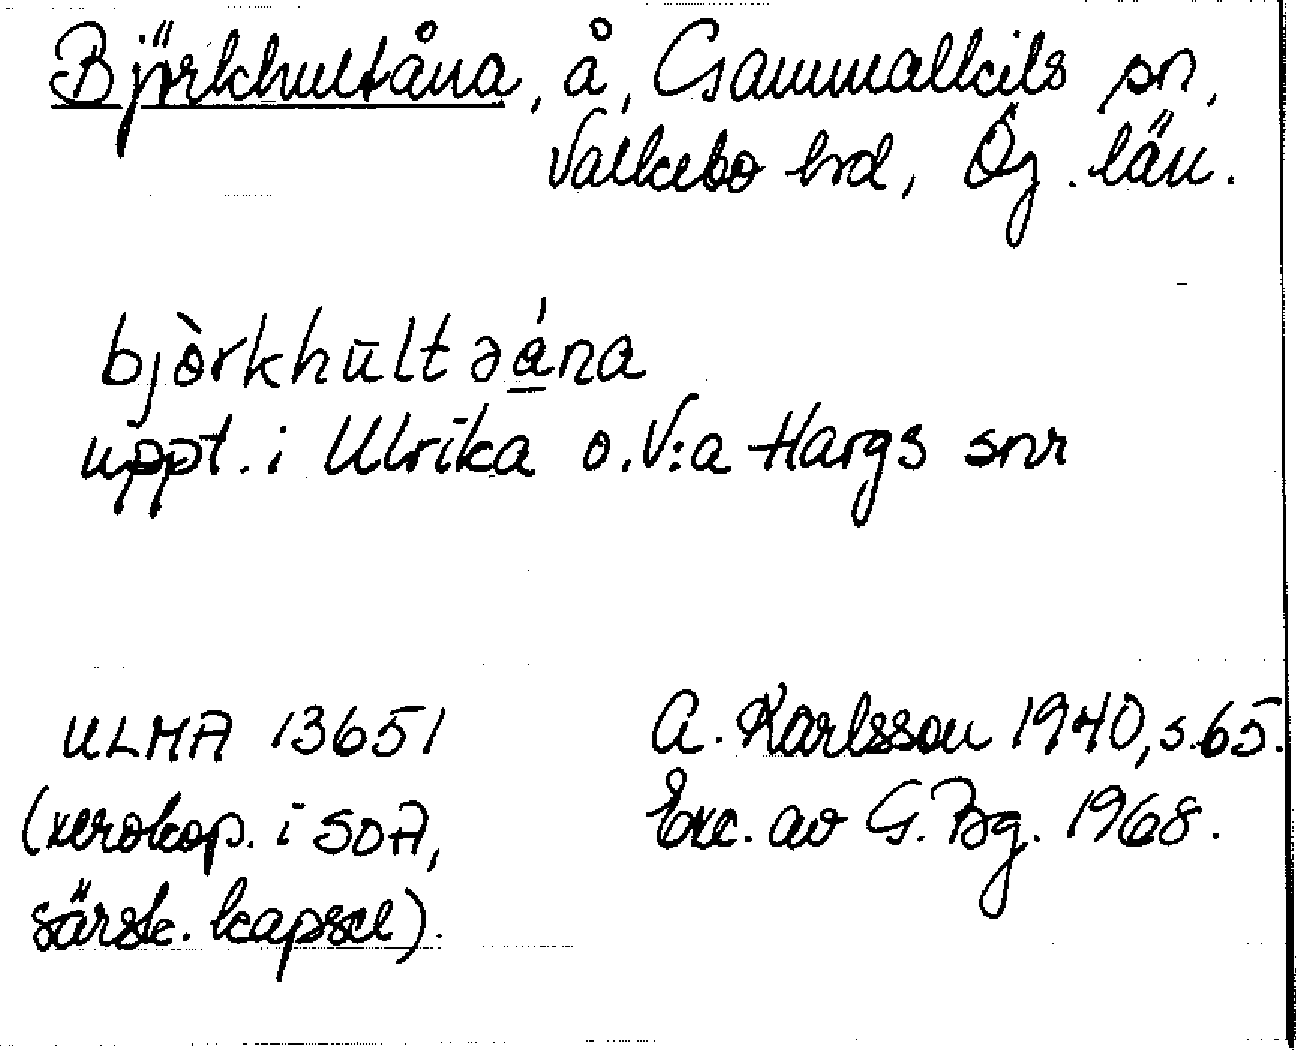 Björkhultåna, å, Gammalkils sn,
Valkebo hd, Ög. län.
bjòrkhūltəá̱na
uppt. i Ulrika o. V:a Hargs snr
ULMA 13651
(xerokop. i SOA,
särsk. kapsel).
A. Karlsson 1940, s. 65.
Exc. av G. Bg. 1968.